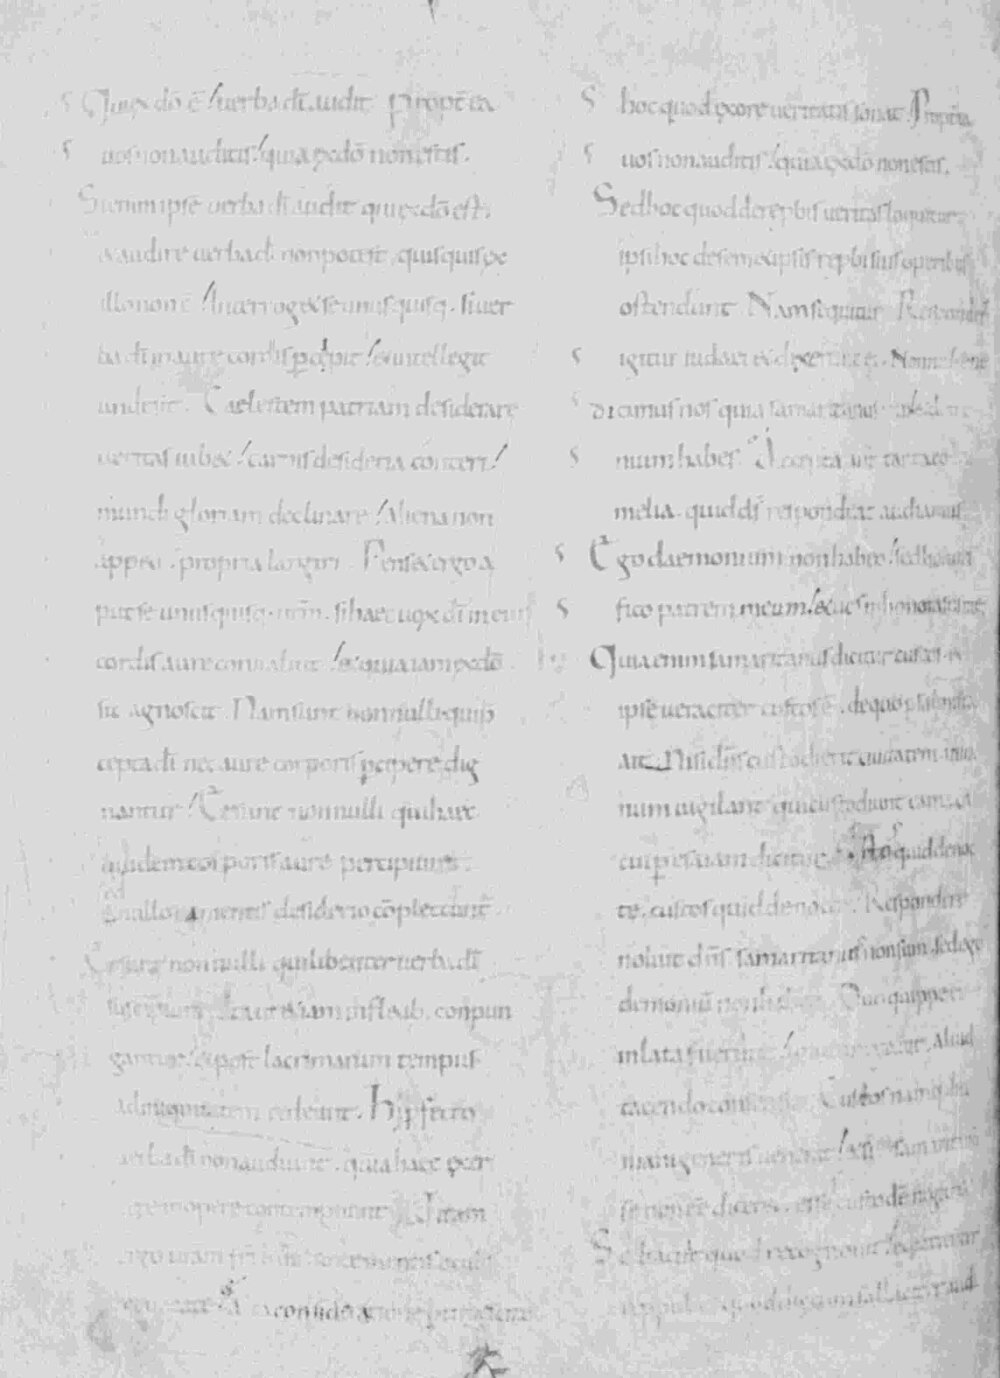 Qui ex dō ē / uerba dī audit Propt̄ea
uos non auditis / quia ex dō non estis.
Si enim ipse uerba dī audit qui ex dō est,
& audire uerba dī non potest quisquis ex
illo non ē / Interrog& se unusquisq. si uer
ba dī in aure cordis p̄cepit / & intellegit
unde sit. Caelestem patriam desiderare
ueritas iub& / carnis desideria conteri /
mundi gloriam declinare / aliena non
appeti. propria largiri Pens& ergo a
put se unusquisq. ur̄m. si haec uox dī in eius
cordis aure conualuit / & quia iam ex dō
sit agnoscit Nam sunt nonnulli qui p̄
cepta dī nec aure corporis percipere dig
nantur / Et sunt nonnulli qui haec
quidem corporis aure percipiunt.
sed nullo mentis desiderio cōplectunt̄
Et sunt nonnulli qui libenter uerba dī
suscipiunt ita ut &iam in fl&ib. conpun
gantur / & post lacrimarum tempus
ad iniquitatem redeunt. Hi p̄fecto
uerba dī non audiunt. quia haec exer
cere in opere contemnunt Uitam
ergo uram fr̄s ante mentis oculos
reuocate & alta consideratione pertimescite
hoc quod ex ore ueritatis sonat. Propt̄ea
uos non auditis / quia ex dō non estis.
Sed hoc quod de repbis ueritas loquitur
ipsi hoc de semetipsis repbi suis operibus
ostendunt Nam sequitur Responderunt
igitur iudaei & dixerunt ei. Nonne bene
dicimus nos quia samaritanus es & demo
nium habes. Accepta aut̄ tanta co
melia. quid dn̄s respondeat audiamus
Ego daemonium non habeo / sed honori
fico patrem meum / & uos inhonorastis me
Quia enim samaritanus dicitur custos. &
ipse ueraciter custos ē. de quo psalmista
ait. Nisi dn̄s custodierit ciuitatem. in ua
num uigilant qui custodiunt eam. &
cui p̄ esaiam dicitur. custos quid de noc
te. custos quid de nocte Respondere
noluit dn̄s samaritanus non sum. sed ego
demoniū non habeo Duo quippe ei
inlata fuerunt / unum negauit. Aliud
tacendo consensit. Custos namq. hu
mani generis uenerat / & si samaritanū
se non eē diceret. esse custodē negaret
Sed tacuit quod recognouit / & patienter
reppulit quod dictum fallaciter audi